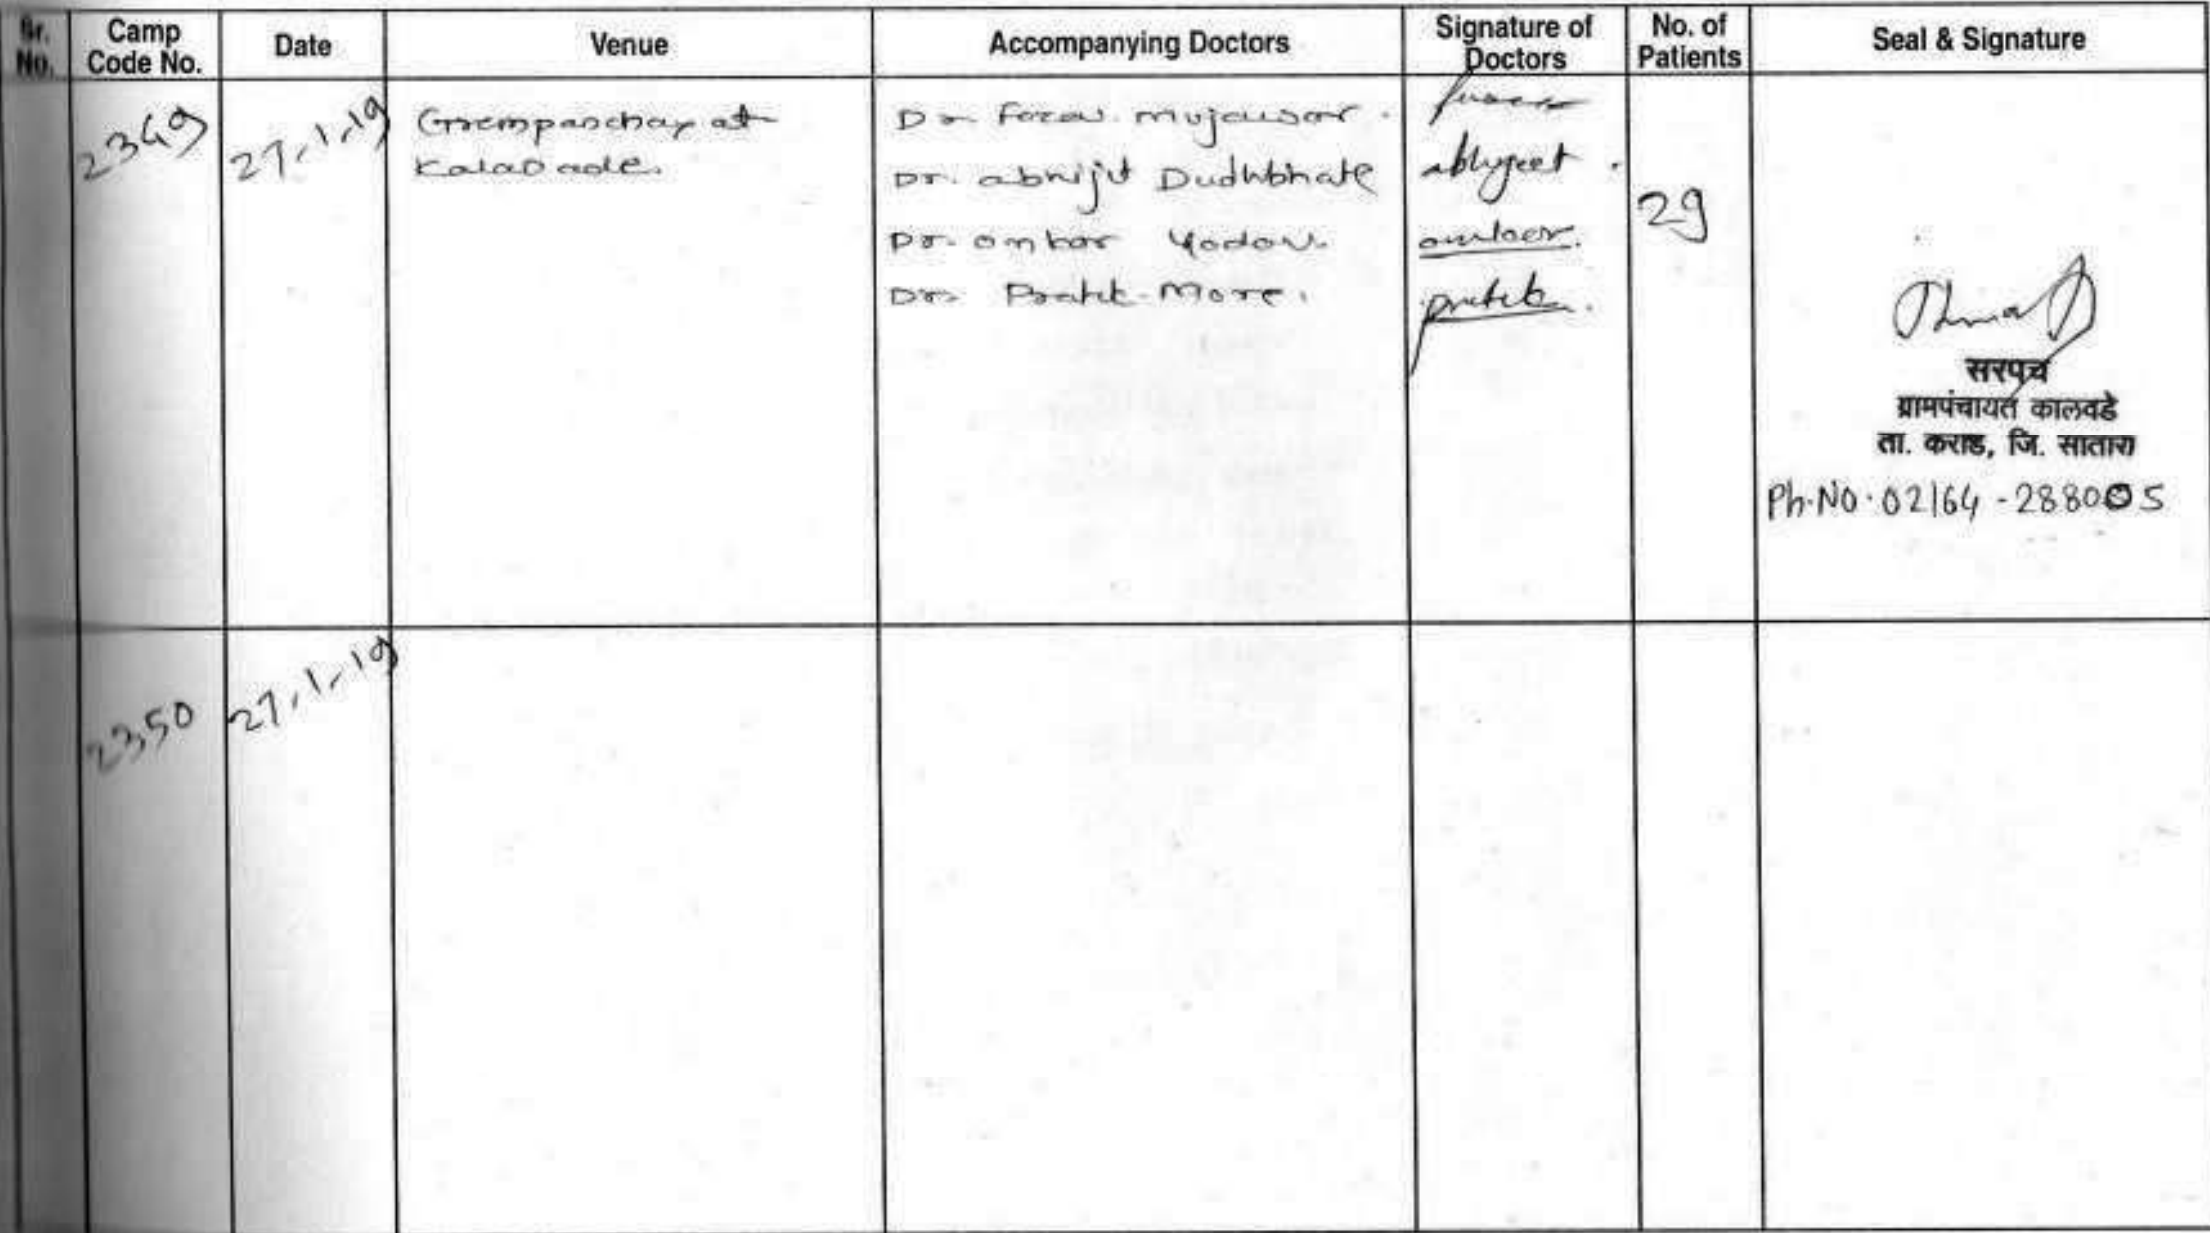 Sr. No. Camp Code No. Date Venue Accompanying Doctors Signature of Doctors No. of Patients Seal & Signature
2349 27.1.19 Grempanchayat Dr. Mujawar.
Kalavade. Dr. abhijit Dudhbhate abhyeet.
29
Dr. omkar Yadav. omkar.
Dr. Pratik More. pratik.
सरपंच
ग्रामपंचायत कालवडे
ता. कराड, जि. सातारा
Ph.No. 02164-288005
2350 27.1.19